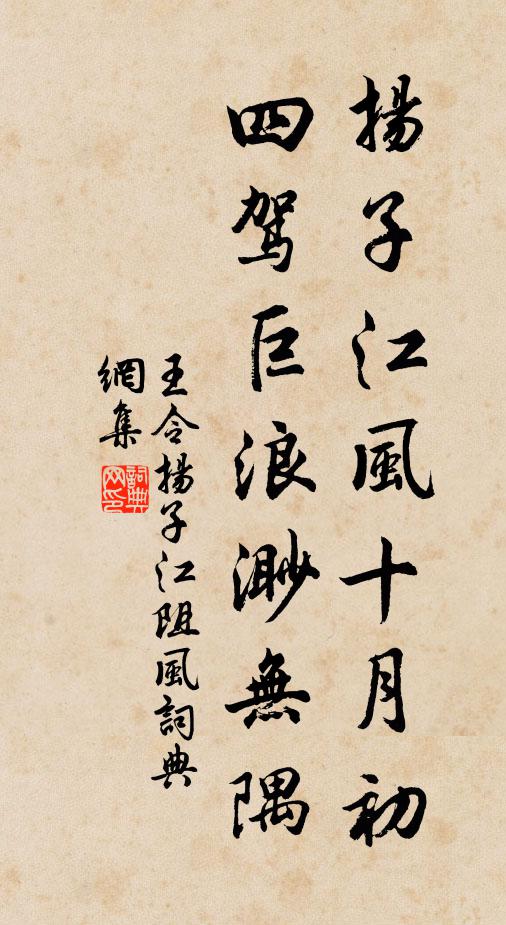 揚子江風十月初
四駕巨浪渺無隅
王令揚子江阻風詞典
網集
詞典
网印